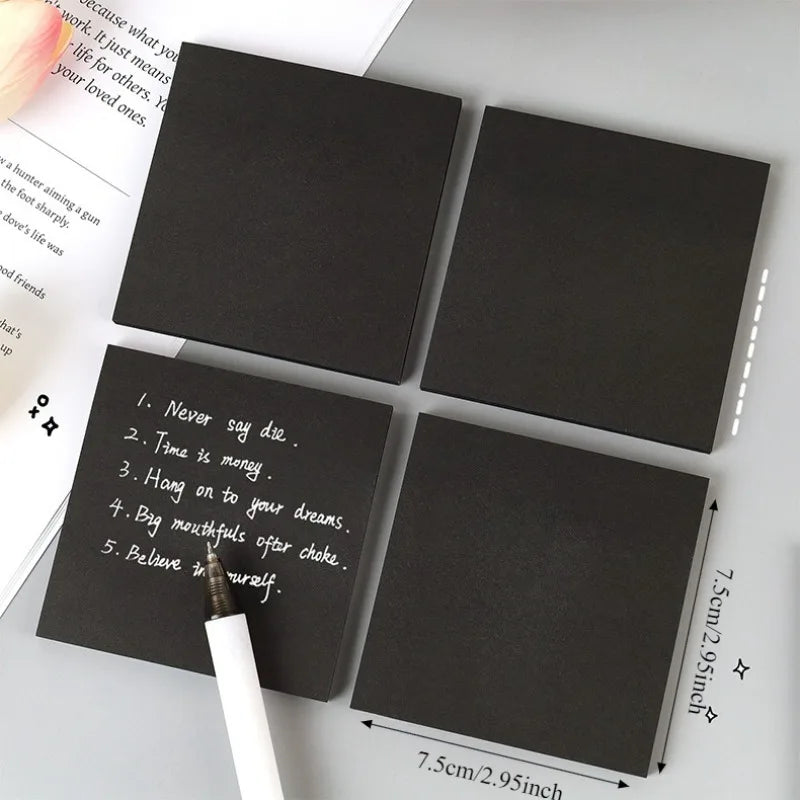 because what you
work. It just means
life for others. Yo
your loved ones.
w a hunter aiming a gun
the foot sharply.
e dove's life was
ood friends
hat's
up
1. Never say die.
2. Time is money.
3. Hang on to your dreams.
4. Big mouthfuls ofter choke.
5. Believe in yourself.
7.5cm/2.95inch
7.5cm/2.95inch